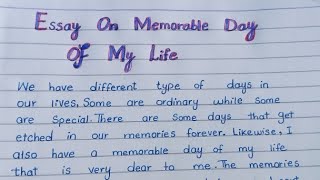 Essay On Memorable Day
Of My Life
We have different type of days in
our lives. Some are ordinary while some
are Special. There are Some days that get
etched in our memories forever. Likewise, I
also have a memorable day of my life
that is very dear to me. The memories